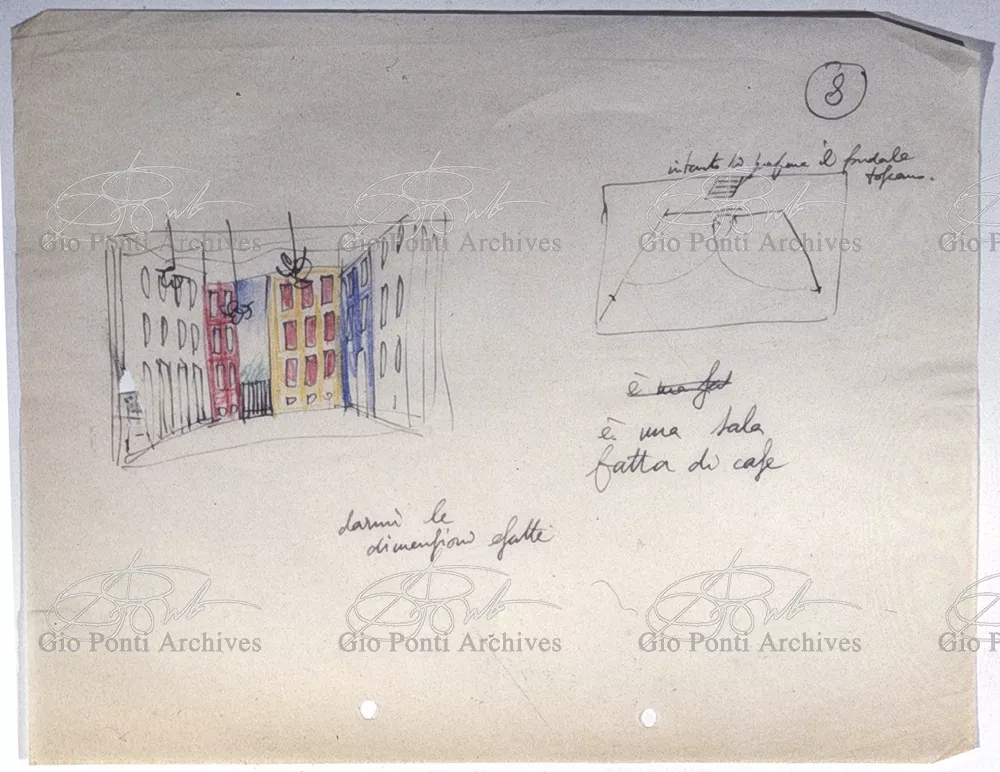 8
intanto si prepara il fondale
toscano.
Gio Ponti Archives Gio Ponti Archives Gio Ponti Archives Gio
è ma
è una sala
fatta di case
darmi le
dimensioni esatte
Gio Ponti Archives Gio Ponti Archives Gio Ponti Archives Gio